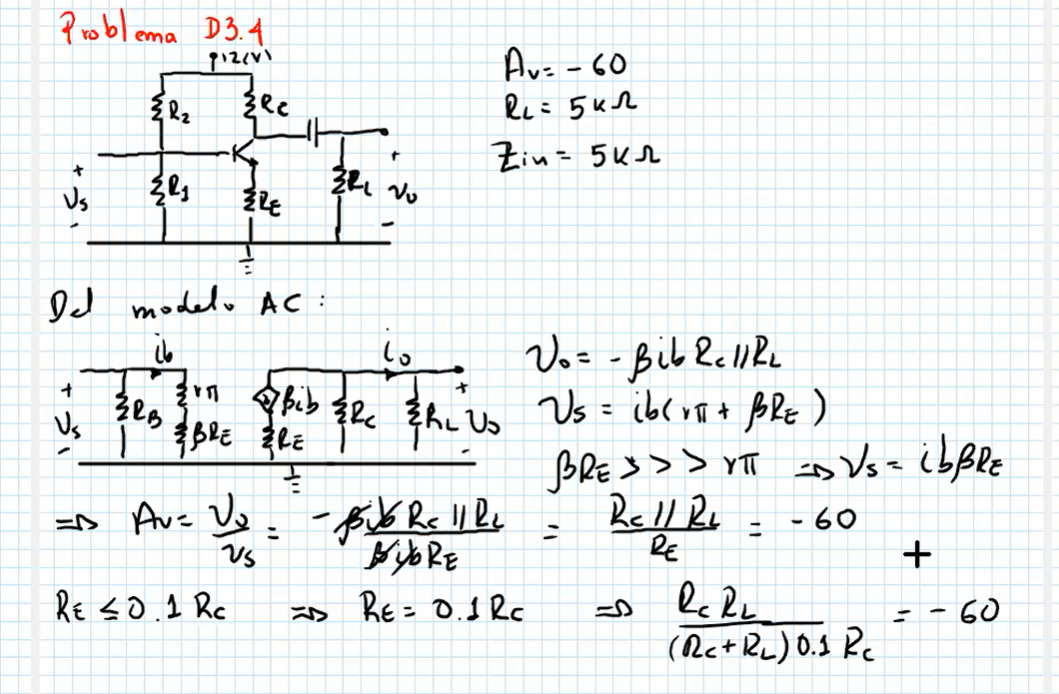 Problema D3.4
12(V)
R2 Rc
+ R1 RE RL +
Vs Vo
- -
Av = - 60
RL = 5 KΩ
Zin = 5 KΩ
Del modelo AC :
ib io
+ rπ +
Vs RB βRE βib RE Rc RL Vo
- -
Vo = - βib Rc // RL
Vs = ib( rπ + βRE )
βRE >>> rπ ⇒ Vs = ibβRE
⇒ Av = Vo/Vs = - βib Rc // RL / βibRE = Rc // RL / RE = - 60
RE ≤ 0.1 Rc ⇒ RE = 0.1 Rc ⇒ Rc RL / (Rc + RL) 0.1 Rc = - 60